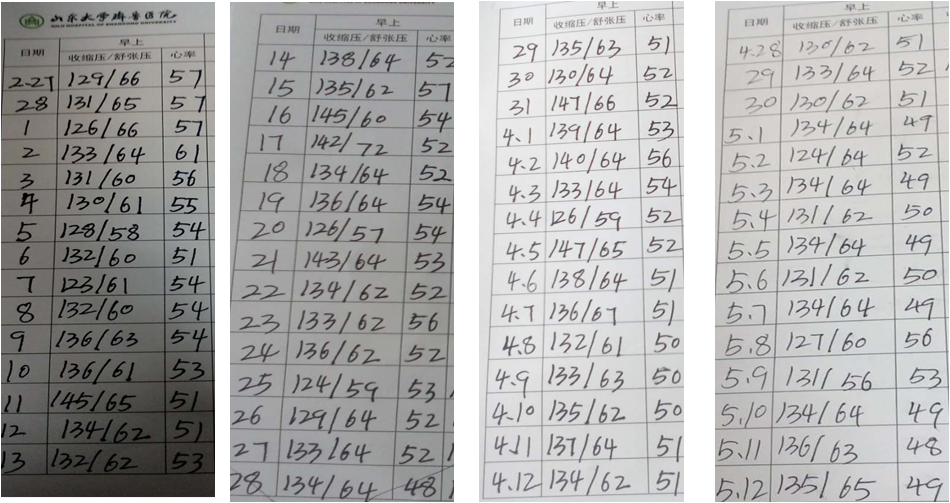 山东大学齐鲁医院
SHANDONG UNIVERSITY
日期 早上
收缩压/舒张压 心率
2.27 129/66 57
28 131/65 57
1 126/66 57
2 133/64 61
3 131/60 56
4 130/61 55
5 128/58 54
6 132/60 51
7 123/61 54
8 132/60 54
9 136/63 54
10 136/61 53
11 145/65 51
12 134/62 51
13 132/62 53
日期 早上
收缩压/舒张压 心率
14 138/64 52
15 135/62 57
16 145/60 54
17 142/72 52
18 134/64 52
19 136/64 54
20 126/57 54
21 143/64 53
22 134/62 52
23 133/62 56
24 136/62 52
25 124/59 53
26 129/64 52
27 133/64 52
28 134/64 48
日期 早上
收缩压/舒张压 心率
29 135/63 51
30 130/64 52
31 147/66 52
4.1 139/64 53
4.2 140/64 56
4.3 133/64 54
4.4 126/59 52
4.5 147/65 52
4.6 138/64 51
4.7 136/67 51
4.8 132/61 50
4.9 133/63 50
4.10 135/62 50
4.11 137/64 51
4.12 134/62 51
日期 早上
收缩压/舒张压 心率
4.28 130/62 51
29 133/64 52
30 130/62 51
5.1 134/64 49
5.2 124/64 52
5.3 134/64 49
5.4 131/62 50
5.5 134/64 49
5.6 131/62 50
5.7 134/64 49
5.8 127/60 56
5.9 131/56 53
5.10 134/64 49
5.11 136/63 48
5.12 135/65 49